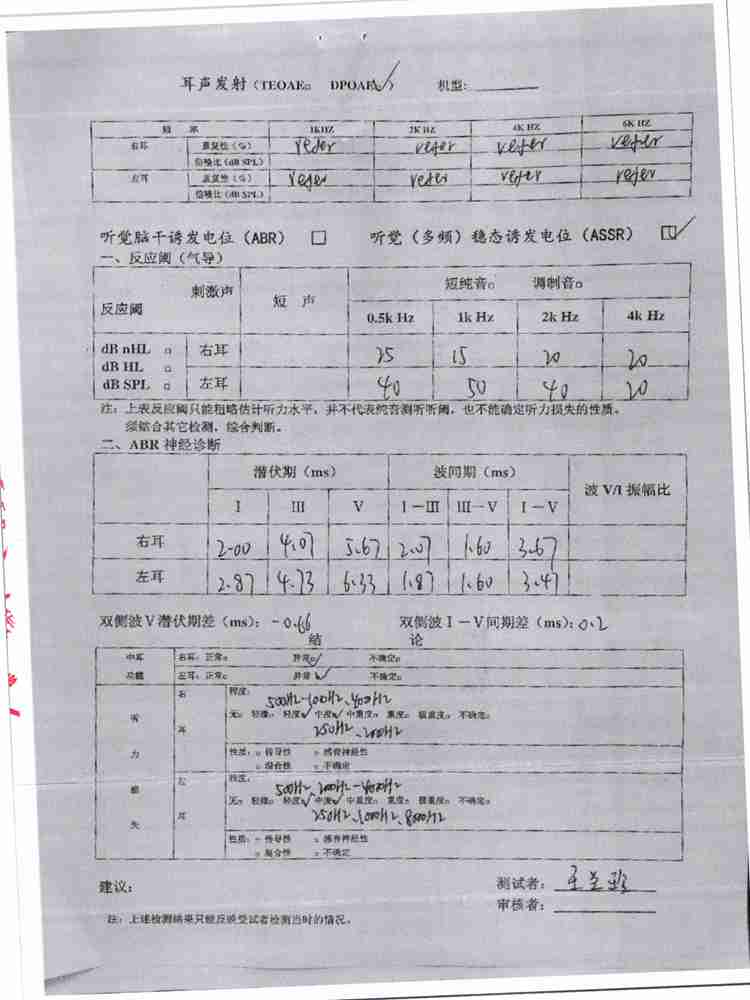 耳声发射（TEOAE□ DPOAE☑） 机型：
频 率 1KHZ 2K HZ 4K HZ 6K HZ
右耳 重复性（%） refer refer refer refer
信噪比（dB SPL）
左耳 重复性（%） refer refer refer refer
信噪比（dB SPL）
听觉脑干诱发电位（ABR） □ 听觉（多频）稳态诱发电位（ASSR） ☑
一、反应阈（气导）
刺激声 短 声 短纯音□ 调制音□
反应阈 0.5k Hz 1k Hz 2k Hz 4k Hz
dB nHL □ 右耳 25 15 20 20
dB HL □
dB SPL □ 左耳 40 50 40 20
注：上表反应阈只能粗略估计听力水平，并不代表纯音测听听阈，也不能确定听力损失的性质。
须结合其它检测，综合判断。
二、ABR 神经诊断
潜伏期（ms） 波间期（ms） 波 V/I 振幅比
I III V I－III III－V I－V
右耳 2.00 4.07 5.67 2.07 1.60 3.67
左耳 2.87 4.73 6.33 1.87 1.60 3.47
双侧波 V 潜伏期差（ms）：-0.66 双侧波 I－V 间期差（ms）：0.2
结 论
中耳 右耳：正常□ 异常☑ 不确定□
功能 左耳：正常□ 异常☑ 不确定□
右 程度：
500Hz-1000Hz、4000Hz
听 无□ 轻微□ 轻度☑ 中度☑ 中重度□ 重度□ 极重度□ 不确定□
耳 250Hz、2000Hz
力 性质：□ 传导性 □ 感音神经性
□ 混合性 □ 不确定
损 左 程度：
500Hz、2000Hz-4000Hz
无□ 轻微□ 轻度☑ 中度☑ 中重度□ 重度□ 极重度□ 不确定□
失 耳 250Hz、1000Hz、8000Hz
性质：□ 传导性 □ 感音神经性
□ 混合性 □ 不确定
建议： 测试者：王兰
审核者：
注：上述检测结果只能反映受试者检测当时的情况。